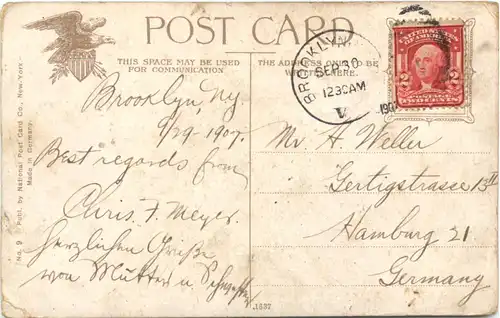 POST CARD
THIS SPACE MAY BE USED
FOR COMMUNICATION
THE ADDRESS ONLY TO BE
WRITTEN HERE.
BROOKLYN
SEP 30
1230AM
V
190
UNITED STATES
OF AMERICA
2 2
POSTAGE
TWO CENTS
Brooklyn, Ny.
9/29 1907.
Best regards from
Chris. F. Meyer.
herzlichen Grüße
von Mutter u
Mr H. Weller
Gertigstrasse 13
Hamburg 21
Germany
No. 9 Publ. by National Post Card Co., New-York.
Made in Germany.
1537